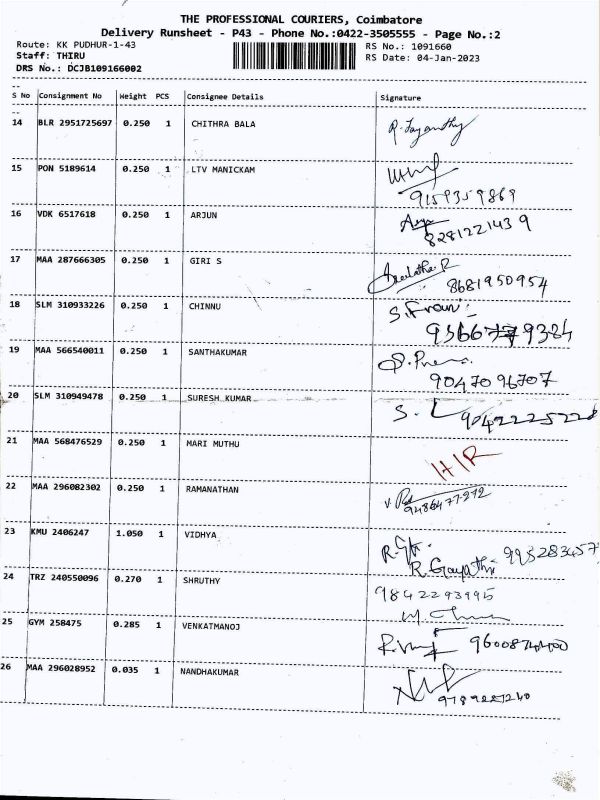 THE PROFESSIONAL COURIERS, Coimbatore
Delivery Runsheet - P43 - Phone No.:0422-3505555 - Page No.:2
Route: KK PUDHUR-1-43
RS No.: 1091660
Staff: THIRU
RS Date: 04-Jan-2023
DRS No.: DCJB109166002
S No Consignment No Weight PCS Consignee Details Signature
14 BLR 2951725697 0.250 1 CHITHRA BALA R. Jayanthy
15 PON 5189614 0.250 1 LTV MANICKAM
9159359869
16 VDK 6517618 0.250 1 ARJUN
8281221439
17 MAA 287666305 0.250 1 GIRI S
8681950954
18 SLM 310933226 0.250 1 CHINNU
19 MAA 566540011 0.250 1 SANTHAKUMAR
9047096707
20 SLM 310949478 0.250 1 SURESH KUMAR
9042225228
21 MAA 568476529 0.250 1 MARI MUTHU
22 MAA 296082302 0.250 1 RAMANATHAN
9486477272
23 KMU 2406247 1.050 1 VIDHYA
R. Gayathri
24 TRZ 240550096 0.270 1 SHRUTHY 9842293995
25 GYM 258475 0.285 1 VENKATMANOJ
26 MAA 296028952 0.035 1 NANDHAKUMAR